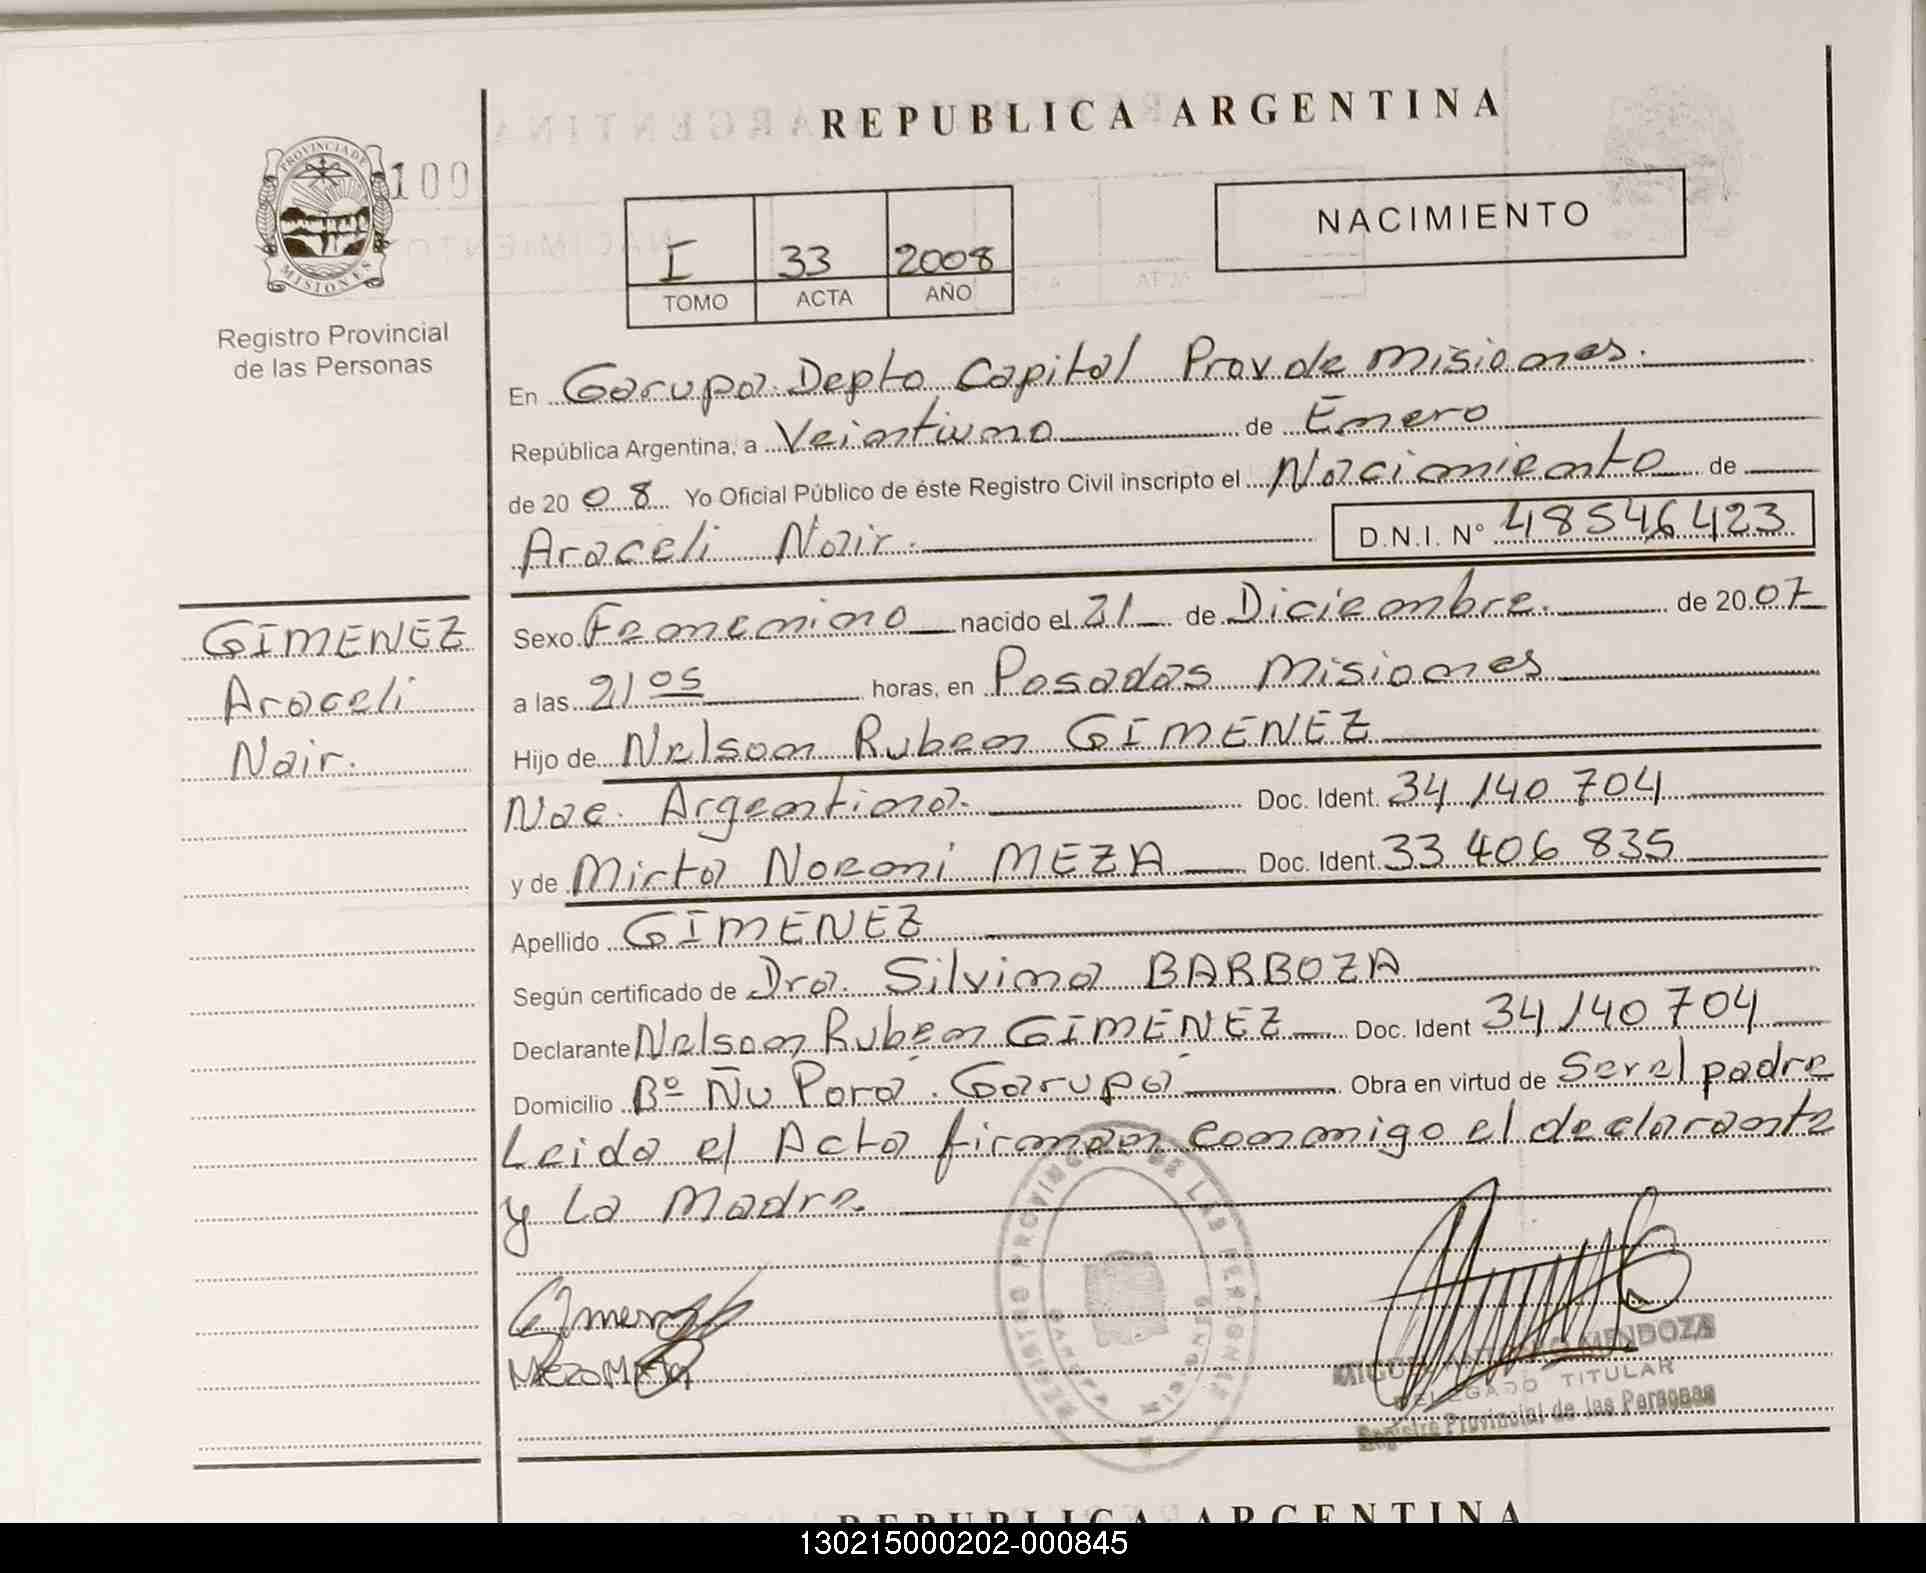 REPUBLICA ARGENTINA
PROVINCIA DE
MISIONES
100
Registro Provincial
de las Personas
I 33 2008
TOMO ACTA AÑO
NACIMIENTO
En Garupa Depto Capital Prov de Misiones.
República Argentina, a Veintiuno de Enero
de 20 08 Yo Oficial Público de éste Registro Civil inscripto el Nacimiento de
Araceli Nair. D.N.I. N° 48546423
GIMENEZ
Araceli
Nair.
Sexo Femenino nacido el 21 de Diciembre. de 20 07
a las 21 05 horas, en Posadas Misiones
Hijo de Nelson Ruben GIMENEZ
Nac. Argentina. Doc. Ident. 34 140 704
y de Mirta Noemi MEZA Doc. Ident. 33 406 835
Apellido GIMENEZ
Según certificado de Dra. Silvina BARBOZA
Declarante Nelson Rubén GIMENEZ Doc. Ident 34 140 704
Domicilio Bº Ñu Porá. Garupá Obra en virtud de Ser el padre
Leida el Acta firman conmigo el declarante
y La Madre.
REGISTRO PROVINCIAL DE LAS PERSONAS
MENDOZA
DELEGADO TITULAR
Registro Provincial de las Personas
REPUBLICA ARGENTINA
130215000202-000845